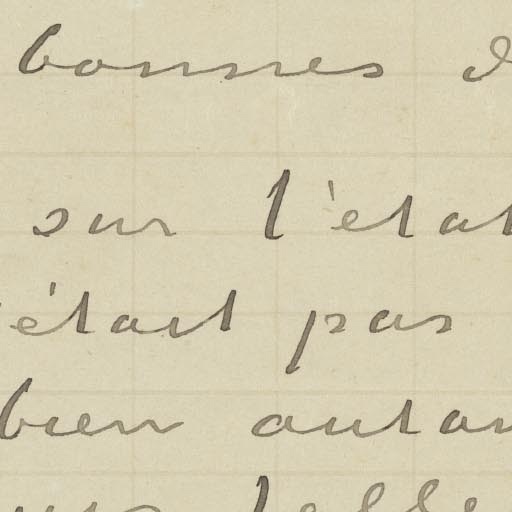 bonnes d
sur l'etat
'était pas
bien autan